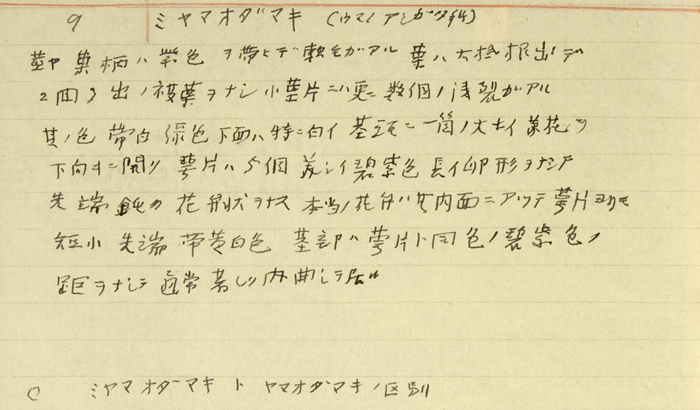 9 ミヤマオダマキ (ウマノアシガタ科)
茎ヤ葉柄ハ紫色ヲ帯ビデ軟毛ガアル 葉ハ大抵根出シデ
2回3出ノ複葉ヲナシ小葉片ニハ更ニ数個ノ浅裂ガアル
其ノ色帯白緑色下面ハ特ニ白イ 茎頭ニ一箇ノ大キイ菓花ヲ
下向キニ開ク 萼片ハ5個美シイ碧紫色長イ卵形ヲナシテ
先端鈍ク花弁状ヲナス 本当ノ花弁ハ其内面ニアツテ萼片ヨリモ
短小先端帯黄白色 基部ハ萼片ト同色ノ碧紫色ノ
距ヲナシテ通常著シク内曲シテ居ル
○ ミヤマオダマキトヤマオダマキノ区別